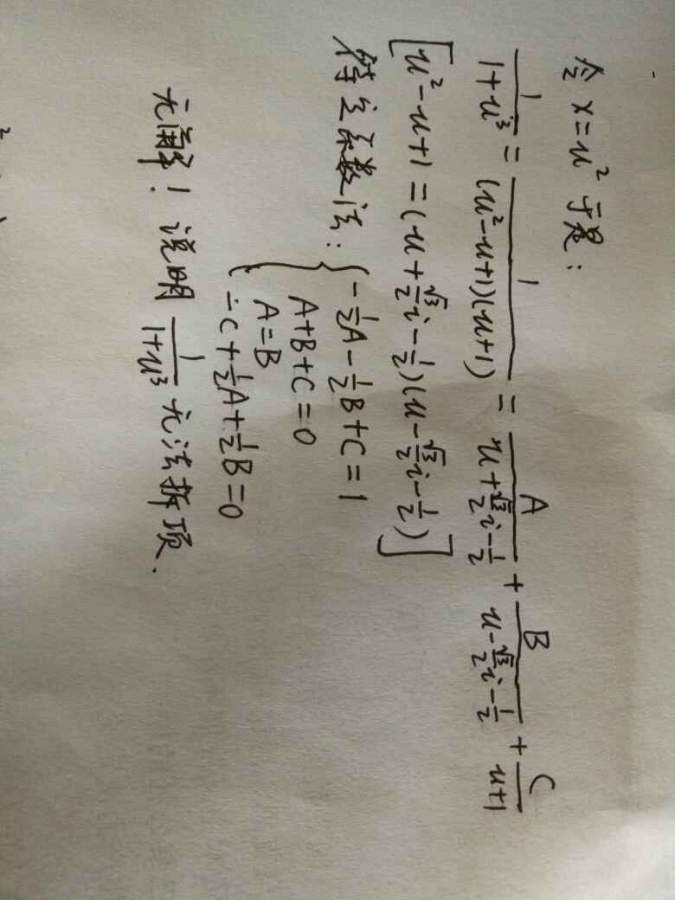 令 x=u² 于是:
1/(1+u³) = 1/((u²-u+1)(u+1)) = A/(u+√3/2 i-1/2) + B/(u-√3/2 i-1/2) + C/(u+1)
[u²-u+1=(u+√3/2 i-1/2)(u-√3/2 i-1/2)]
待定系数法: { -1/2A-1/2B+C=1
A+B+C=0
A=B
-C+1/2A+1/2B=0
无解! 说明 1/(1+u³) 无法拆项.